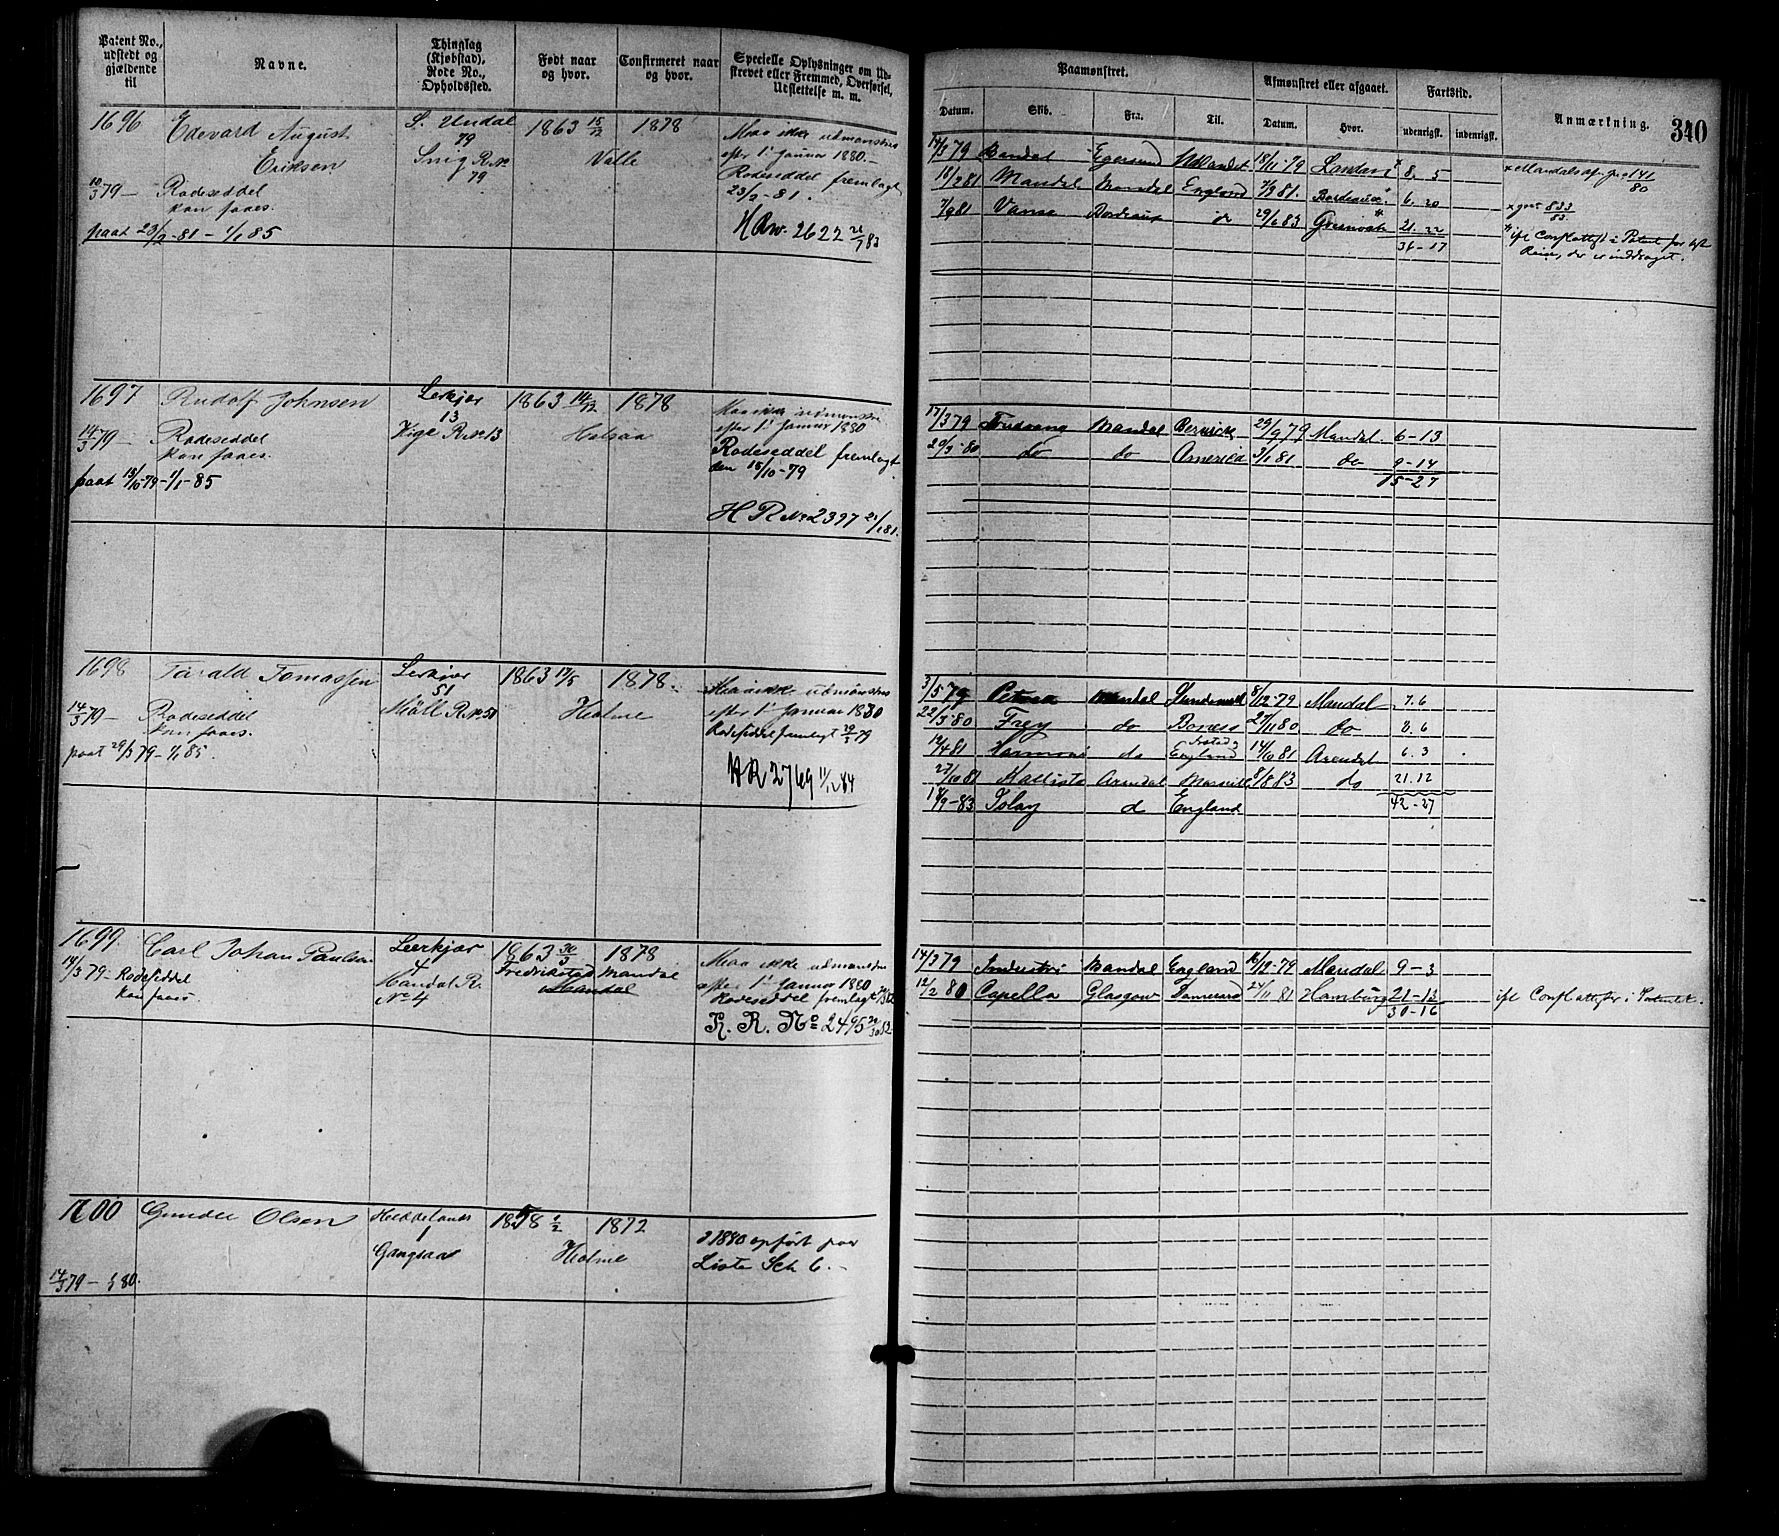 Patent No., udstedt og gjældende til
Navne.
Thinglag (Kjøbstad), Rode No., Opholdssted.
Født naar og hvor.
Confirmeret naar og hvor.
Specielle Oplysninger om Udstrevet eller Fremmed, Overførsel, Udslettelse m. m.
Paamønstret.
Afmønstret eller afgaaet.
Fartstid.
Anmærkning.
340
Datum.
Skib.
Fra.
Til.
Datum.
Hvor.
udenrigsk.
indenrigsk.
1696
Edevard August
Eriksen
S. Undal
79
Snig R No
79
1863 15/12
1878
Valle
Maa ikke udmønstres
efter 1ste Januar 1880.-
Rodeseddel fremlagt
23/2-81.
79 — Rodeseddel
kan faaes.
paat 23/2-81 - 1/1 85
14/3 79 Mandal Egersund Udlandet 18/11-79 London 8. 5
18/2 81 Mandal Mandal England 7/9 81. Bordeaux 6. 20
7/9 81 Vanse Bordeaux do 29/6 83 21. 22
36-17
141/80
833/83
1697
Rudolf Johnsen
Lerkjær
13
Kige R No 13
1863 14/12
1878
Halsaa
Maa ikke udmønstres
efter 1ste Januar 1880
Rodeseddel fremlagt
den 15/10-79
H R No 2397 21/1 81.
14/3 79 — Rodeseddel
kan faaes.
paat 15/10-79 - 1/1-85
17/3 79 Mandal 29/9 79 Mandal. 6-13
20/3-80 do do America 3/1 81 do 9-14
15-27
1698
Tarald Tomassen
Lerkjær
51
R No 51
1863 17/5
1878.
Holme
Maa ikke udmønstres
efter 1ste Januar 1880
Rodeseddel fremlagt 29/3 79
HR 2769 11/12 84
14/3 79 — Rodeseddel
kan faaes.
paat 29/3 79 - 1/1 85.
3/5 79 Petrea Mandal 8/12-79 Mandal. 7. 6
22/3-80 Frey do 27/11 80 do 8. 6
12/4 81 Harmoni do England 14/10 81 Arendal 6. 3
27/10 81 Kallisto Arendal 8/8 83 do 21. 12
42-27
18/9-83 do England
1699
Carl Johan Paulsen
Leerkjær
4
Mandal R.
No 4
1863 30/3
1878
Fredrikstad Mandal
Mandal
Maa ikke udmønstres
efter 1ste Januar 1880
Rodeseddel fremlagt
R. R. No 2495
14/3 79 - Rodeseddel
kan faaes
14/3 79 Industri Mandal England 16/12-79 Mandal 9-3
12/2 80 Capella Glasgow 24/11 81 Hamburg 21-13
30-16
ifl Conf. attester i Patentet.
1700
Gunder Olsen
Halddelands
1
Gangsaa
1858 1/2
1872
Holme
i 1880 opført paa
Liste Sch 6.-
14/3 79 — 80.